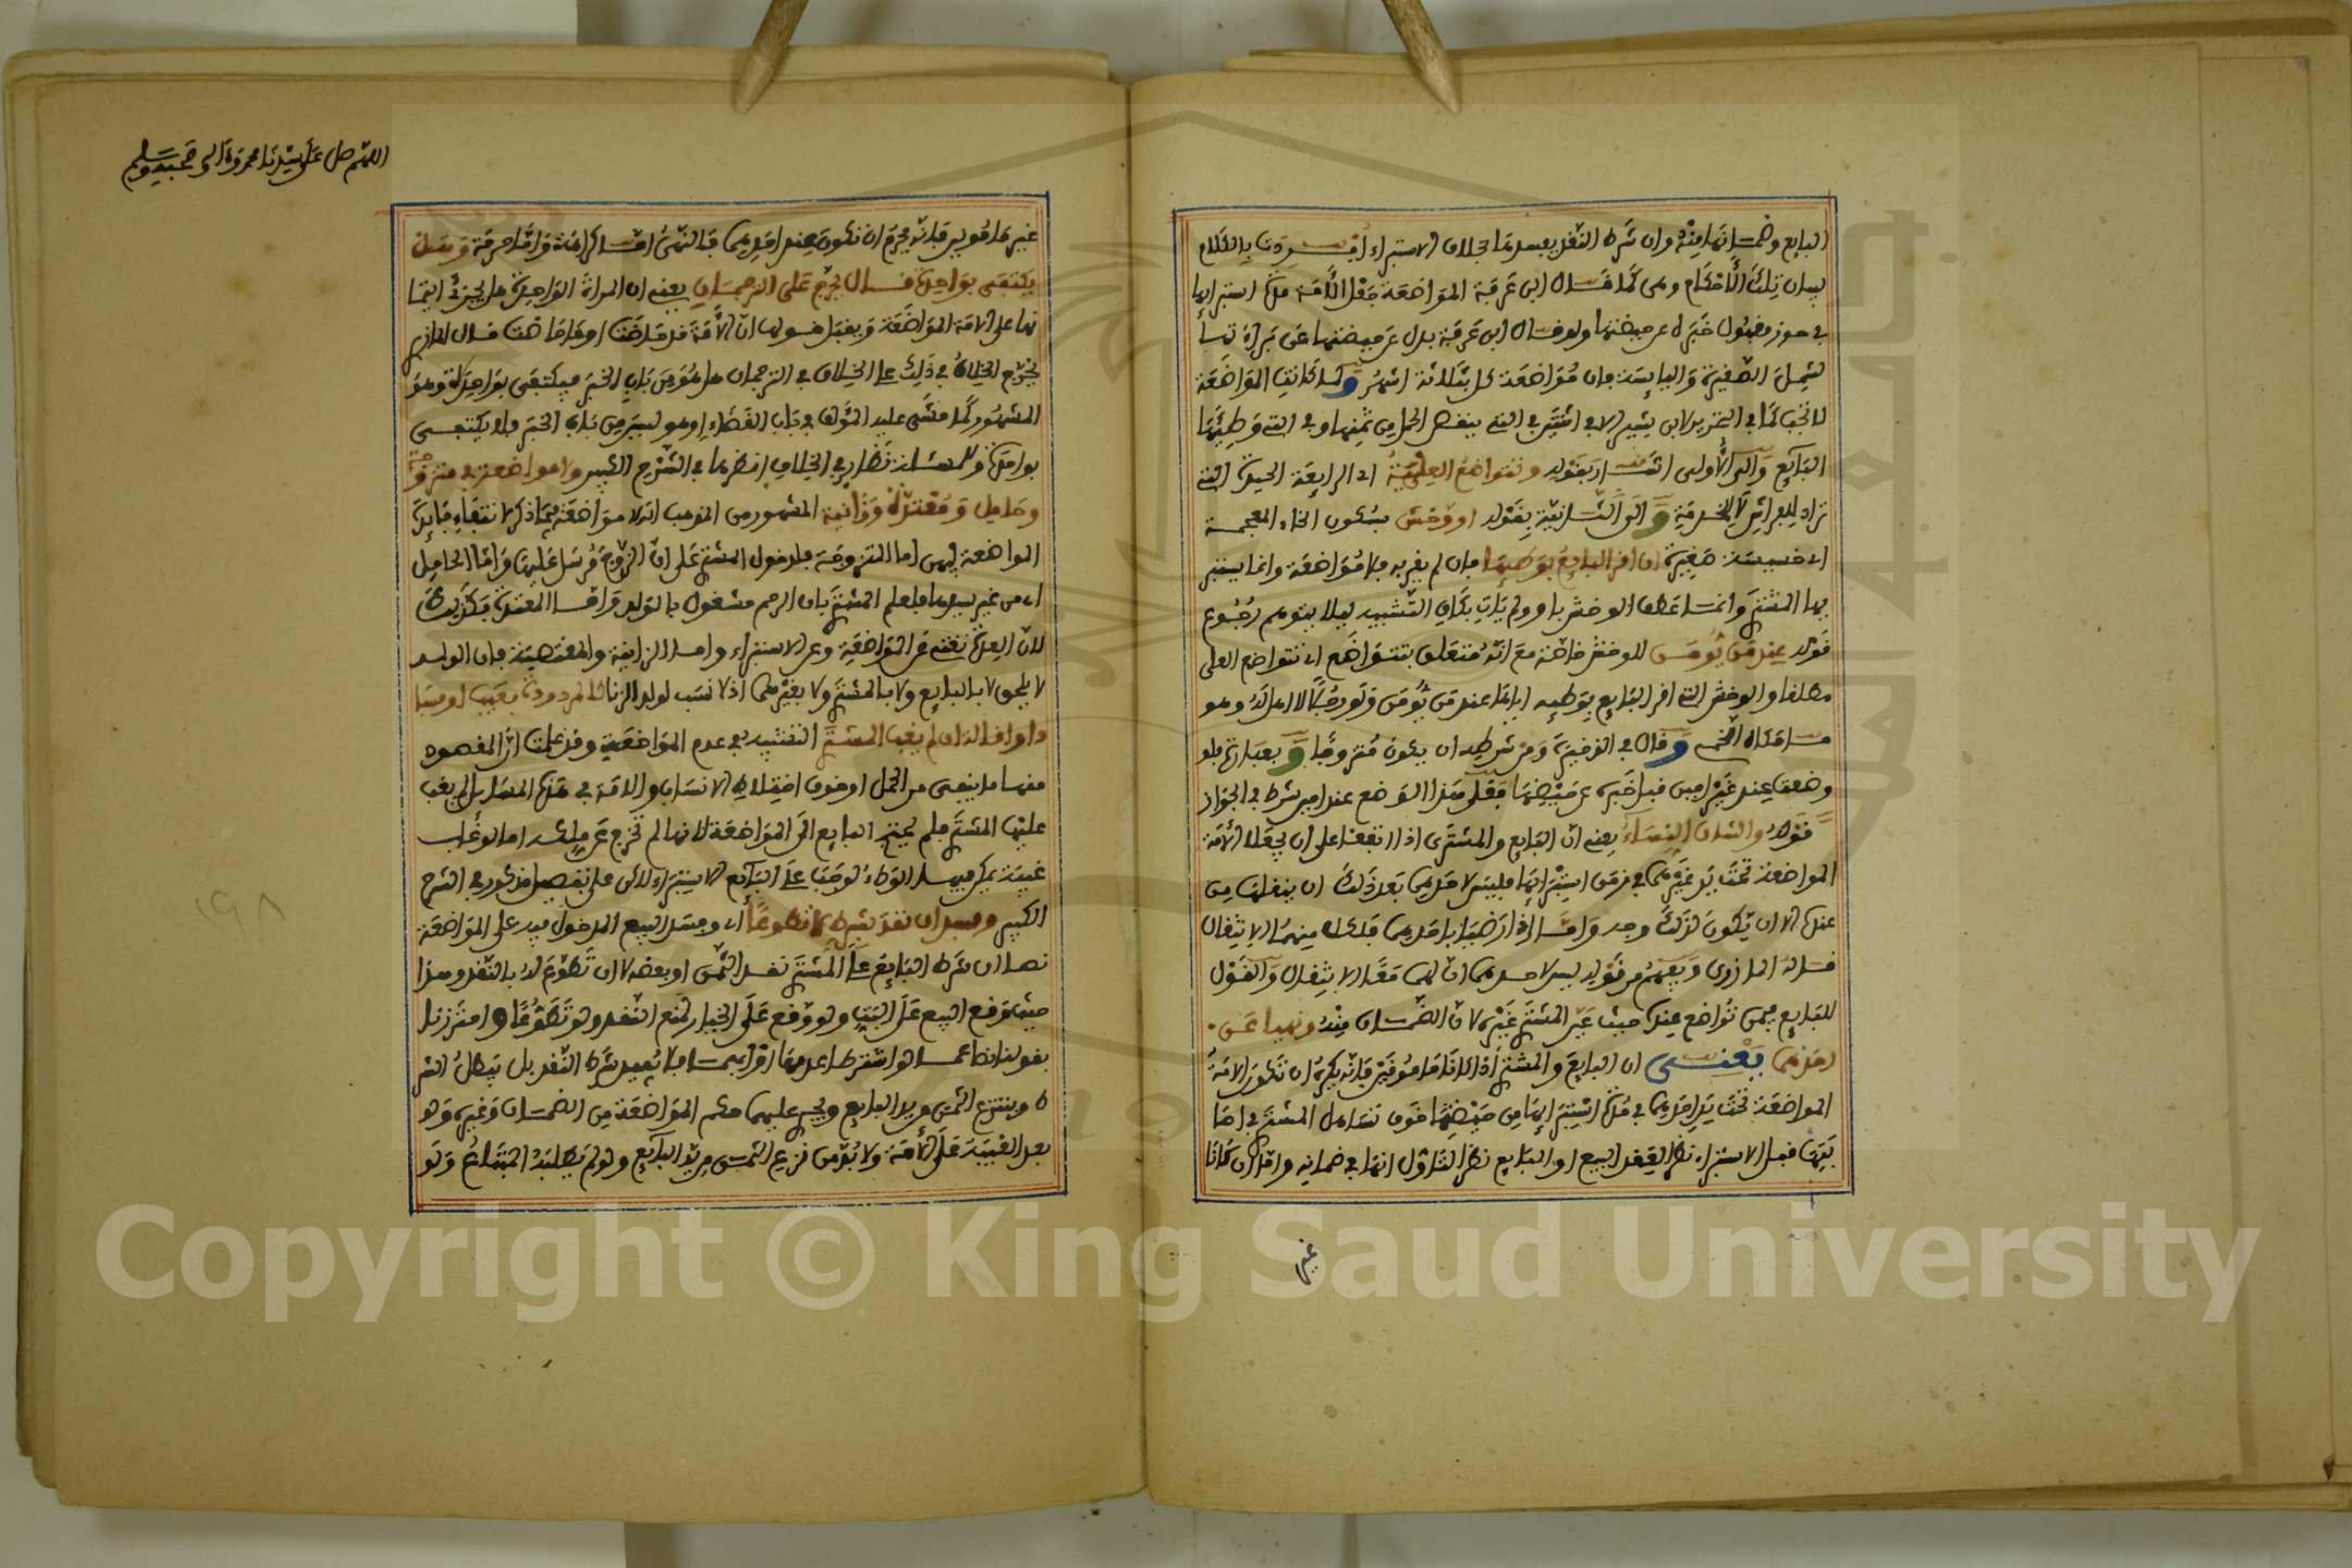 البايع وضمانها منه وان شرط النقد يفسدها بخلاف الاستبراء اردف بالكلام
بيان تلك الاحكام وهي كما قال ابن عرفة المواضعة جعل الامة مدة استبرائها
في حوز مقبول خبره عن حيضتها ولو قال ابن عرفة بدل عن حيضتها عن براءتها
لشمل الصغيرة واليائسة فان مواضعة كل بثلاثة اشهر ولما كانت المواضعة
لا تجب كما في التحرير لابن بشير الا في اثنتين في التي ينقص الحمل من ثمنها وفي التي وطئها
البايع والى الاولى اشار بقوله وتتواضع العلية اي الرايعة الجيدة التي
تراد للفراش لا للخدمة والى الثانية بقوله او وخش بسكون الخاء المعجمة
اي خسيسة حقيرة ان اقر البايع بوطئها فان لم يقر به فلا مواضعة وانما يستبر
يها المشتري وانما عطف الوخش باو ولم يات بكاف التشبيه ليلا يتوهم رجوع
قوله عند من يؤمن للوخش خاصة مع انه متعلق بتتواضع اي تتواضع العلي
مطلقا والوخش التي اقر البايع بوطئه اياها عند من يؤمن ولو رجلا له اهل وهو
وقال في الذخيرة ومن شرطه ان يكون متزوجا وبعبارة فلو
وضعت عند غير امين قبل خبره عن حيضتها فعلى هذا الوضع عند امين شرط في الجواز
قوله والشان النساء يعني ان البايع والمشتري اذا اتفقا على ان يجعلا الامة
المواضعة تحت يد غيرهما في زمن استبرائها فليس لاحدهما بعد ذلك ان ينقلها من
عنده الا ان يكون لذلك وجه واما اذا رضيا باحدهما فلكل منهما الانتقال
قاله المازري ويفهم من قوله ليس لاحدهما ان لهما معا الانتقال والقول
للبايع فيمن تواضع عنده حيث عين المشتري غيره لان الضمان منه ونهيا عن
احدهما يعني ان البايع والمشتري اذا كانا مامونين فانه يكره ان تكون الامة
المواضعة تحت يد احدهما في مدة استبرائها من حيضتها خوف تساهل المشتري في اصا
بتها قبل الاستبراء نظرا لعقد البيع او البايع نظرا لتاول انها في ضمانه واما ان كانا
غير
اللهم صل على سيدنا محمد وآله وصحبه وسلم
غير مامونين فانه يحرم ان تكون عند احدهما فالنهي اما كراهة واما حرمة وهل
يكتفى بواحدة قال يخرج على الترجمان يعني ان المراة الواحدة هل يجزئ ائتما
نها على الامة المواضعة ويقبل قولها ان الامة قد حاضت او ما حاضت قال المازري
يخرج الخلاف في ذلك على الخلاف في الترجمان هل هو من باب الخبر فيكتفى بواحدة وهو
المشهور كما مشى عليه المؤلف في باب القضاء او هو ليس من باب الخبر فلا يكتفى
بواحدة وللمسئلة نظائر في الخلاف انظرها في الشرح الكبير ولا مواضعة في متزوجة
وحامل ومعتدة وزانية المشهور من المذهب انه لا مواضعة فيما ذكر لانتفاء فايدة
المواضعة فيهن اما المتزوجة فلدخول المشتري على ان الزوج مرسل عليها واما الحامل
اي من غير سيدها فلعلم المشتري بان الرحم مشغول بالولد واما المعتدة فكذلك
لان العدة تغني عن المواضعة وعن الاستبراء واما الزانية والمغتصبة فان الولد
لا يلحق لا بالبايع ولا بالمشتري ولا بغيرهما اذ لا نسب لولد الزنا كالمردودة بعيب او فساد
او اقالة ان لم يغب المشتري التشبيه في عدم المواضعة وقد علمت ان المقصود
منها ما يتقى من الحمل او خوف اختلاط الانساب والامة في هذه المسائل لم يغب
عليها المشتري فلم يحتج البايع الى المواضعة لانها لم تخرج عن ملكه اما لو غاب
غيبة يمكن فيها الوطء لوجب على البايع الاستبراء لاكن على تفصيل مذكور في الشرح
الكبير وفسد ان نقد بشرط لا تطوعا اي وفسد البيع المدخول فيه على المواضعة
نصا ان شرط البايع على المشتري نقد الثمن او بعضه لا ان تطوع له بالنقد وهذا
حيث وقع البيع على البت ولو وقع على الخيار لمنع النقد ولو تطوعا واحترزنا
بقولنا نصا عما لو اشترطا عدمها او فلا يفسد شرط النقد بل يبطل الشر
ط وينتزع الثمن من يد البايع ويجبر عليهما حكم المواضعة من الضمان وغيره ولو
بعد الغيبة على الامة ولا يؤمن نزع الثمن من يد البايع ولو لم يطلبه المبتاع ولو